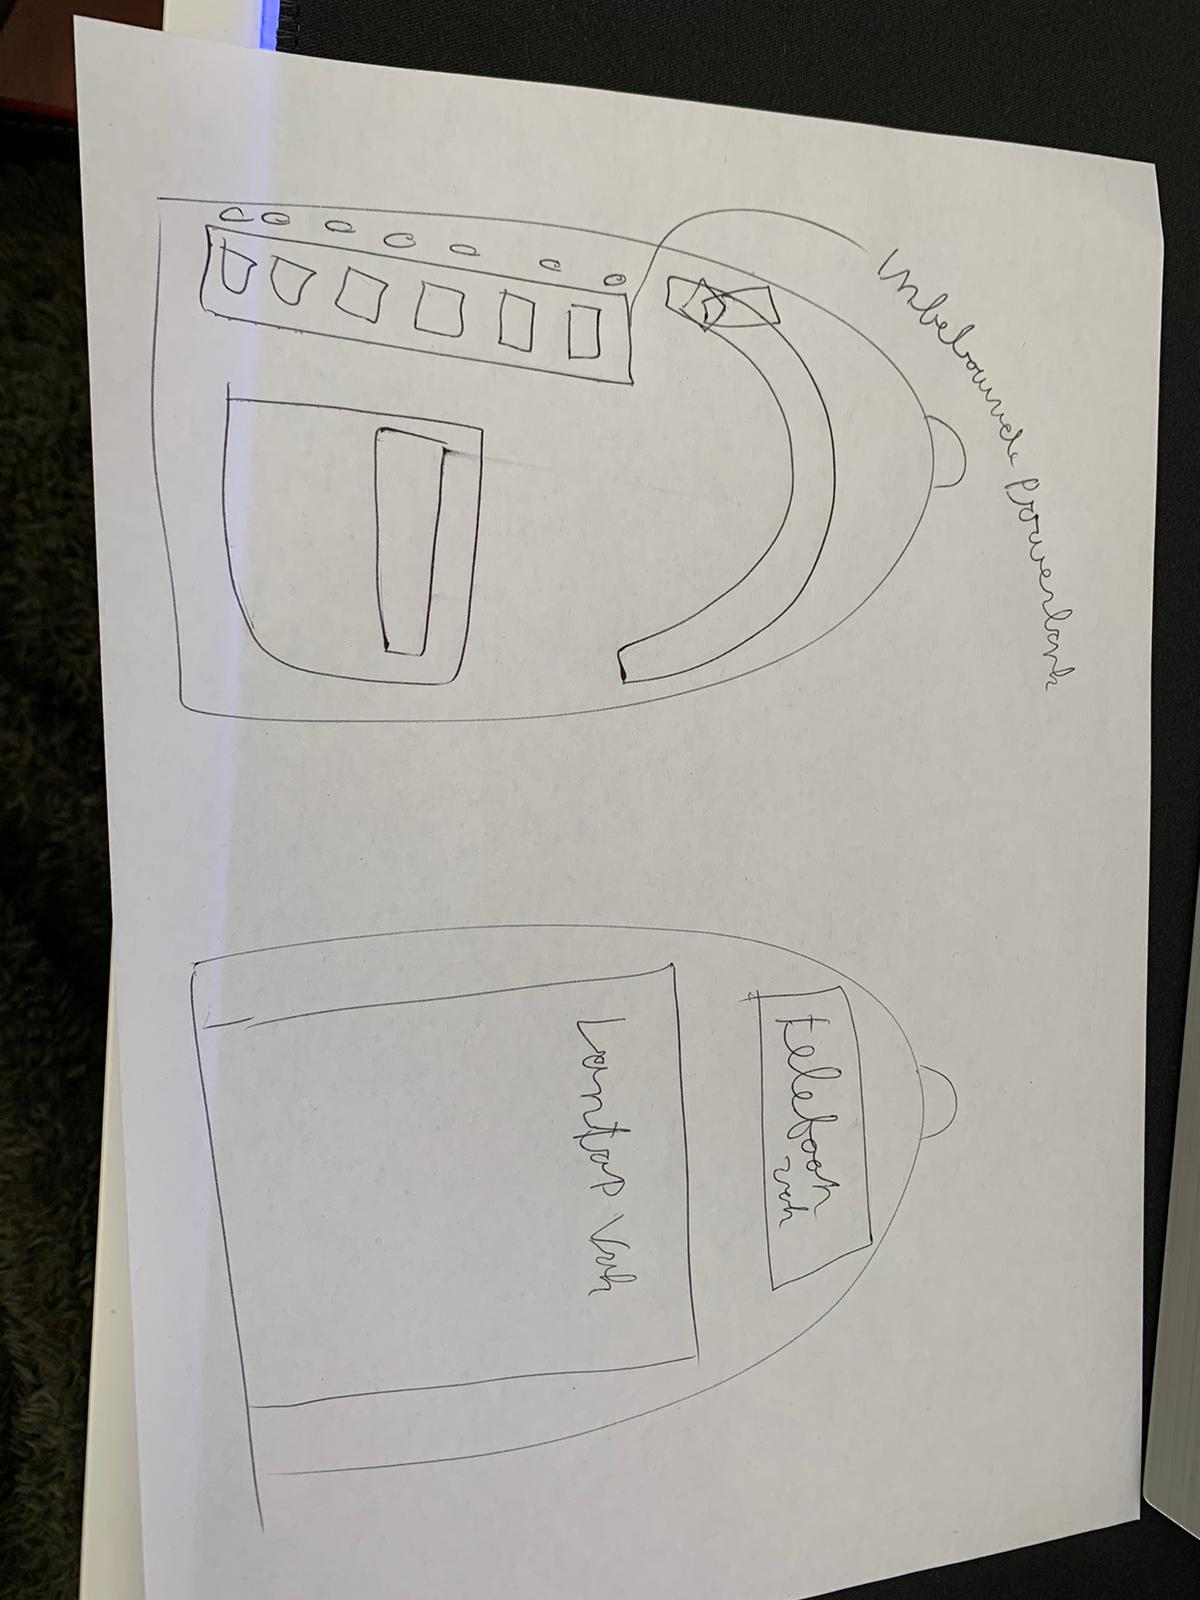 inbebouwde Powerbank
telefoon
vak
Lantop Vak